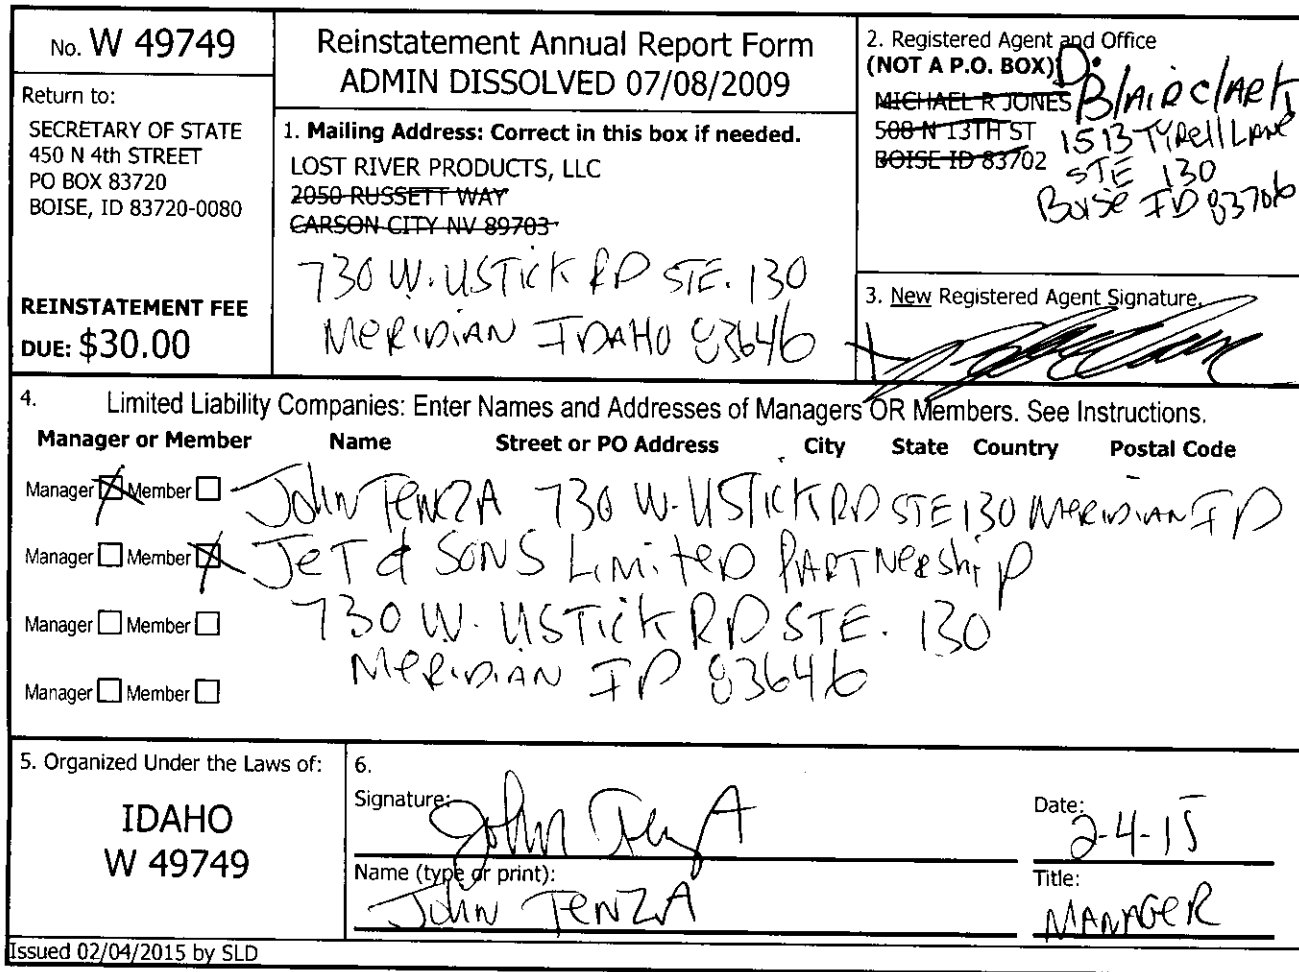 No. W 49749
Return to:
SECRETARY OF STATE
450 N 4th STREET
PO BOX 83720
BOISE, ID 83720-0080
REINSTATEMENT FEE
DUE: $30.00
Reinstatement Annual Report Form
ADMIN DISSOLVED 07/08/2009
1. Mailing Address: Correct in this box if needed.
LOST RIVER PRODUCTS, LLC
2050 RUSSETT WAY
CARSON CITY NV 89703
730 W. USTICK RD STE. 130
MERIDIAN IDAHO 83646
2. Registered Agent and Office
(NOT A P.O. BOX)
MICHAEL R JONES
508 N 13TH ST
BOISE ID 83702
D. BlAIR ClARK
1513 TYRellLANe
STE 130
BoiSe ID 83706
3. New Registered Agent Signature.
4. Limited Liability Companies: Enter Names and Addresses of Managers OR Members. See Instructions.
Manager or Member Name Street or PO Address City State Country Postal Code
Manager Member John TENZA 730 W. USTICK RD STE 130 MERIDIAN ID
Manager Member JeT & SONS LiMiteD PARTNeRShiP
Manager Member 730 W. USTicK RD STE. 130
Manager Member MeRiDiAN ID 83646
5. Organized Under the Laws of:
IDAHO
W 49749
6.
Signature: John TenzA
Date: 2-4-15
Name (type or print):
JOhN TeNZA
Title:
MANAGeR
Issued 02/04/2015 by SLD